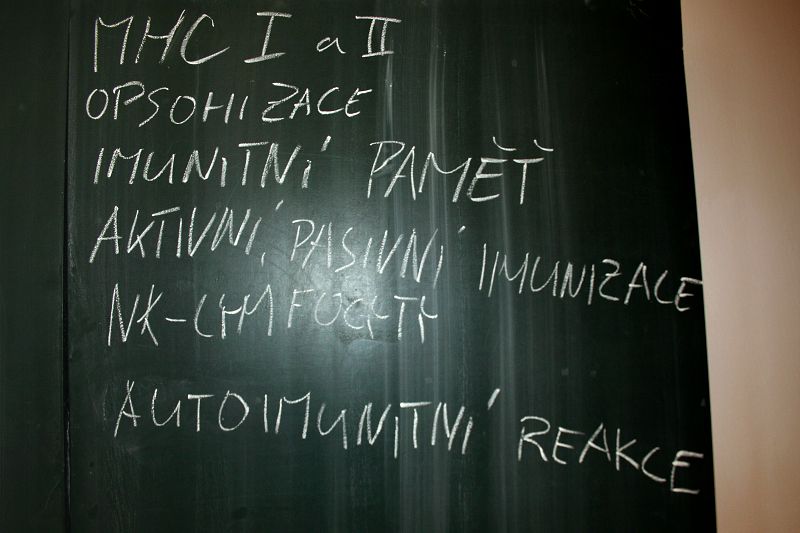 MHC I a II
OPSONIZACE
IMUNITNÍ PAMĚŤ
AKTIVNÍ, PASIVNÍ IMUNIZACE
NK-LYMFOCYTY
AUTOIMUNITNÍ REAKCE